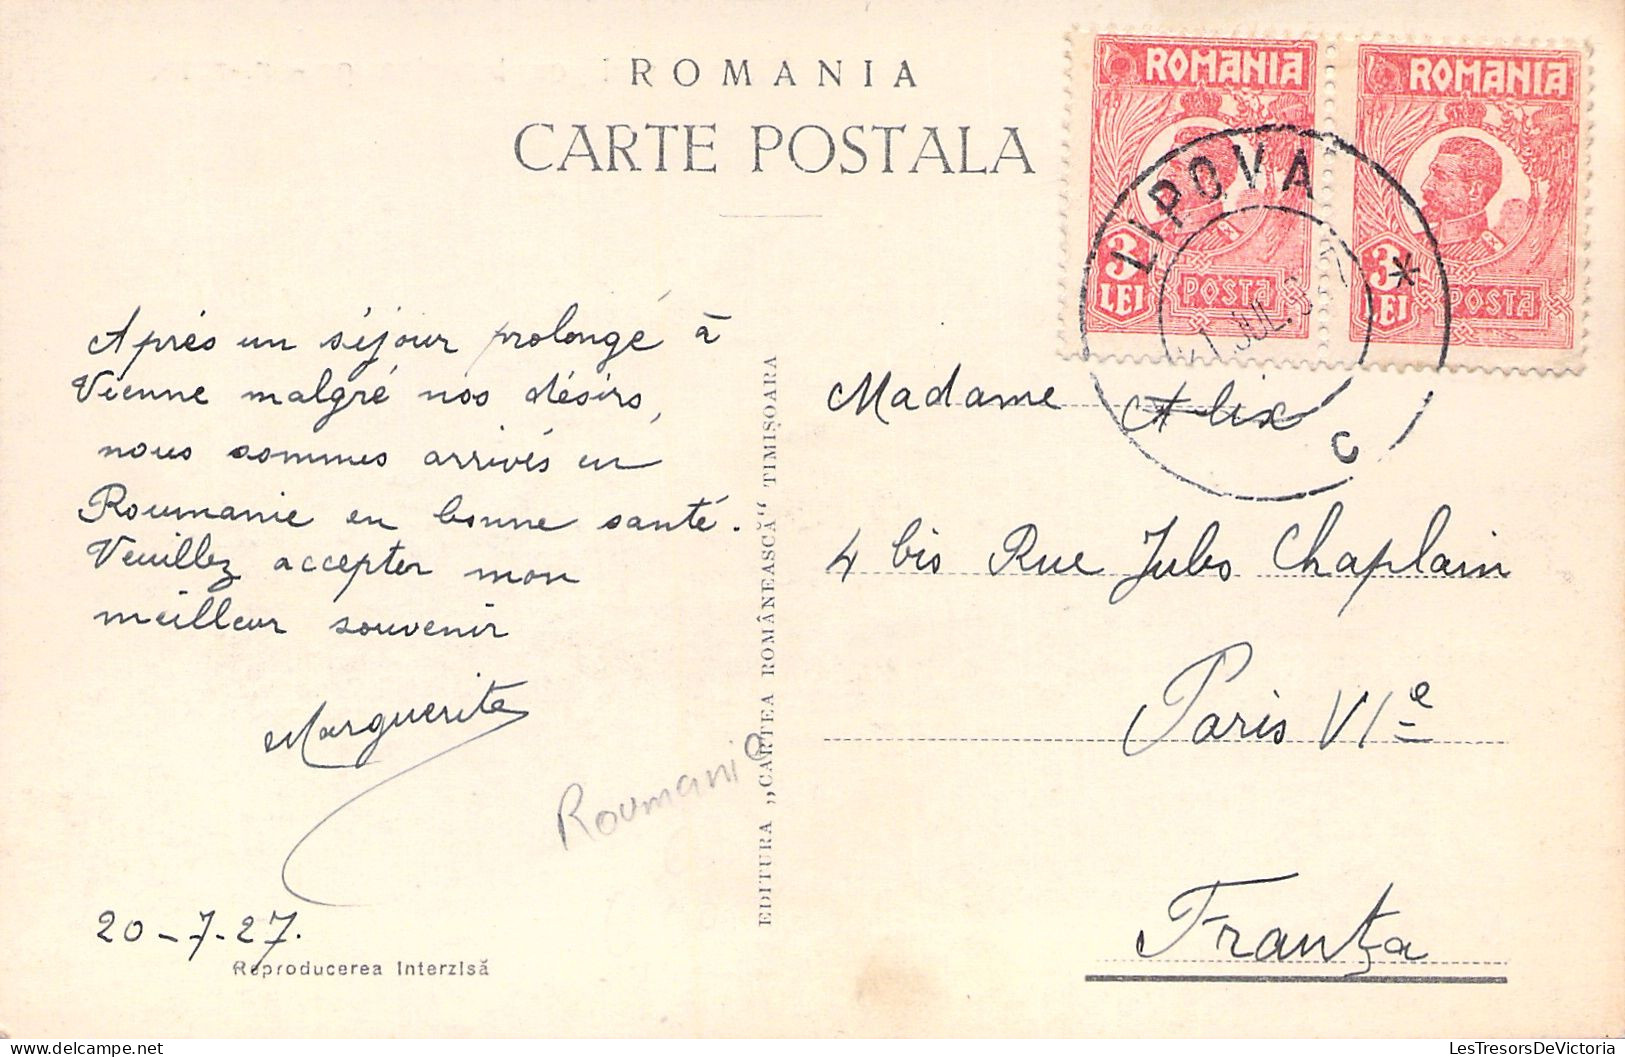 ROMANIA
CARTE POSTALA
ROMANIA
3
LEI
POSTA
ROMANIA
3
LEI
POSTA
LIPOVA
JUL.
*
C
Après un séjour prolongé à
Vienne malgré nos désirs,
nous sommes arrivés en
Roumanie en bonne santé.
Veuillez accepter mon
meilleur souvenir
Marguerite
Roumanie
20-7-27.
Reproducerea interzisă
EDITURA „CARTEA ROMÂNEASCĂ“ TIMIȘOARA
Madame Alix
4 bis Rue Jules Chaplain
Paris VIe
Franța
Delcampe.net
LesTresorsDeVictoria